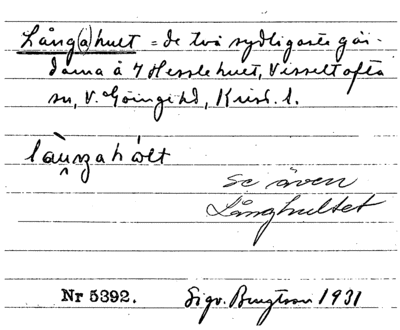 Lång(a)hult = de två sydligaste går-
darna å 7 Hesslehult, Visseltofta
sn, V. Göinge hd, Krist. l.
se även
Långhultet
Nr 5392. Sigv. Bengtsson 1931